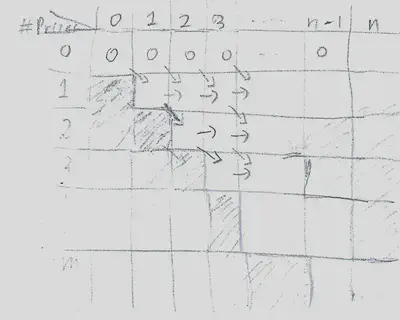 #Prizes 0 1 2 3 ... n-1 n
0 0 0 0 0 0
1
2
3
m